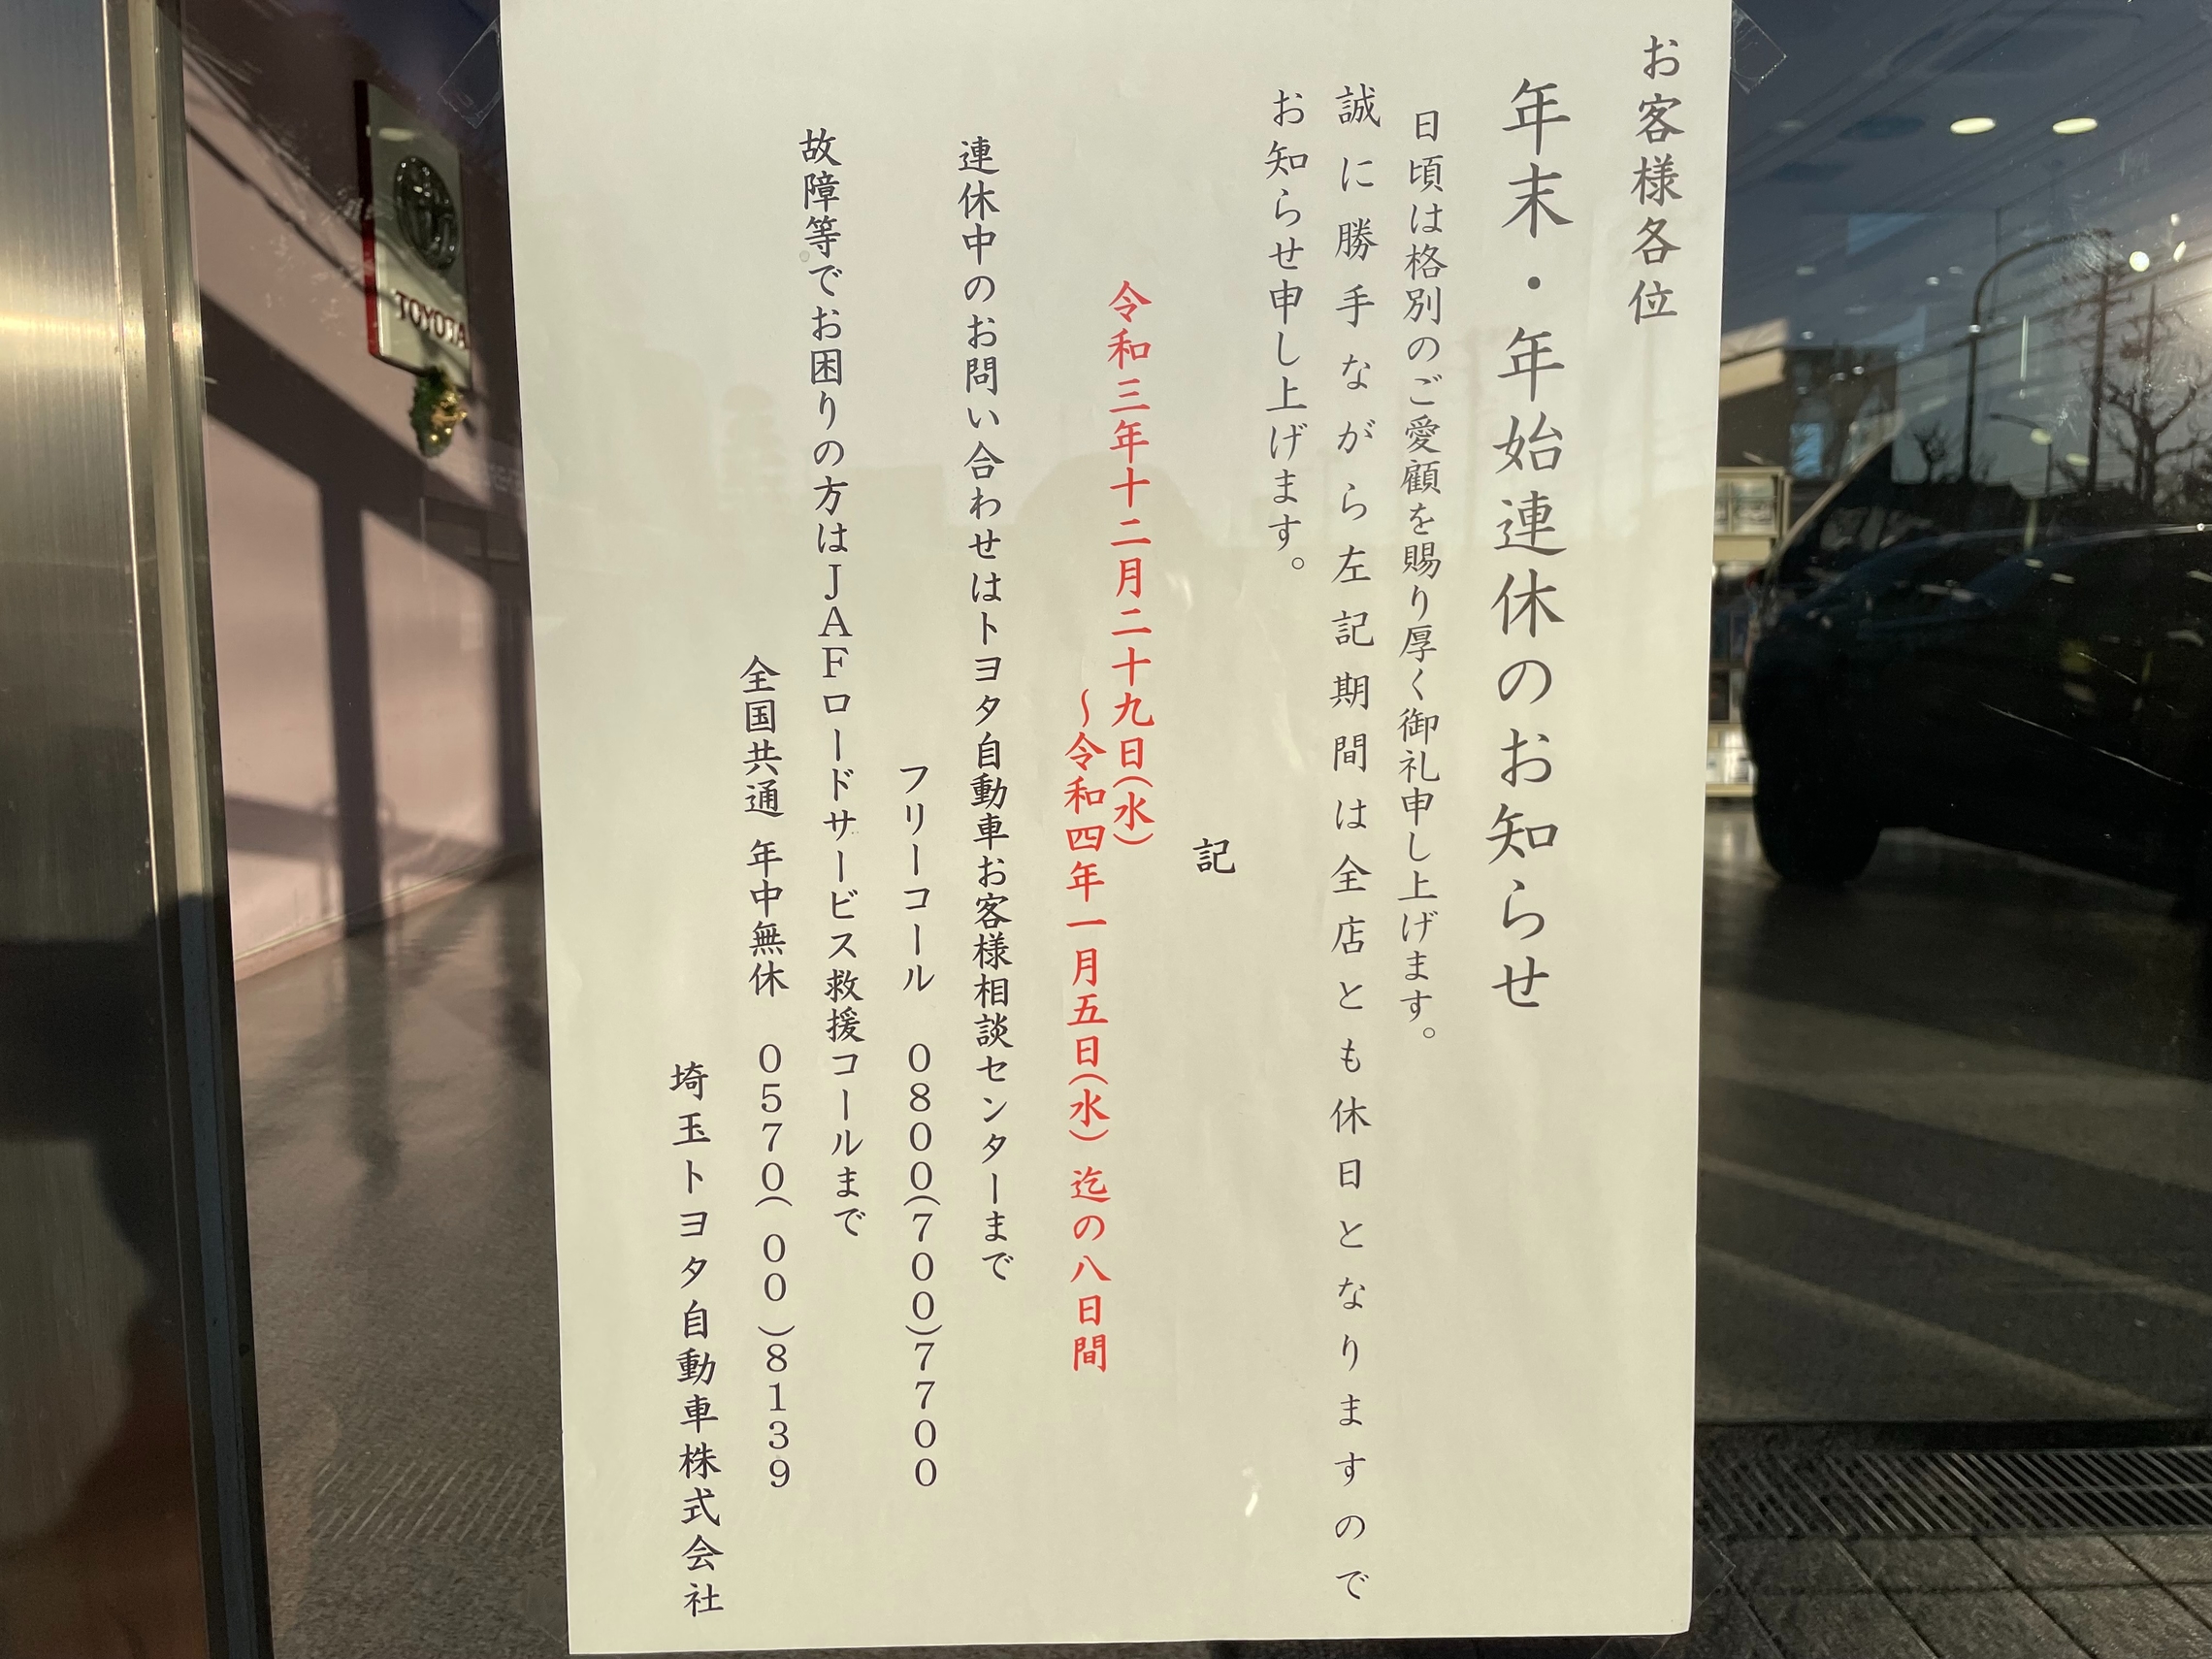 お客様各位
年末・年始連休のお知らせ
日頃は格別のご愛顧を賜り厚く御礼申し上げます。
誠に勝手ながら左記期間は全店とも休日となりますので
お知らせ申し上げます。
記
令和三年十二月二十九日(水)
～令和四年一月五日(水)迄の八日間
連休中のお問い合わせはトヨタ自動車お客様相談センターまで
フリーコール　0800(700)7700
故障等でお困りの方はJAFロードサービス救援コールまで
全国共通 年中無休　0570(00)8139
埼玉トヨタ自動車株式会社
TOYOTA